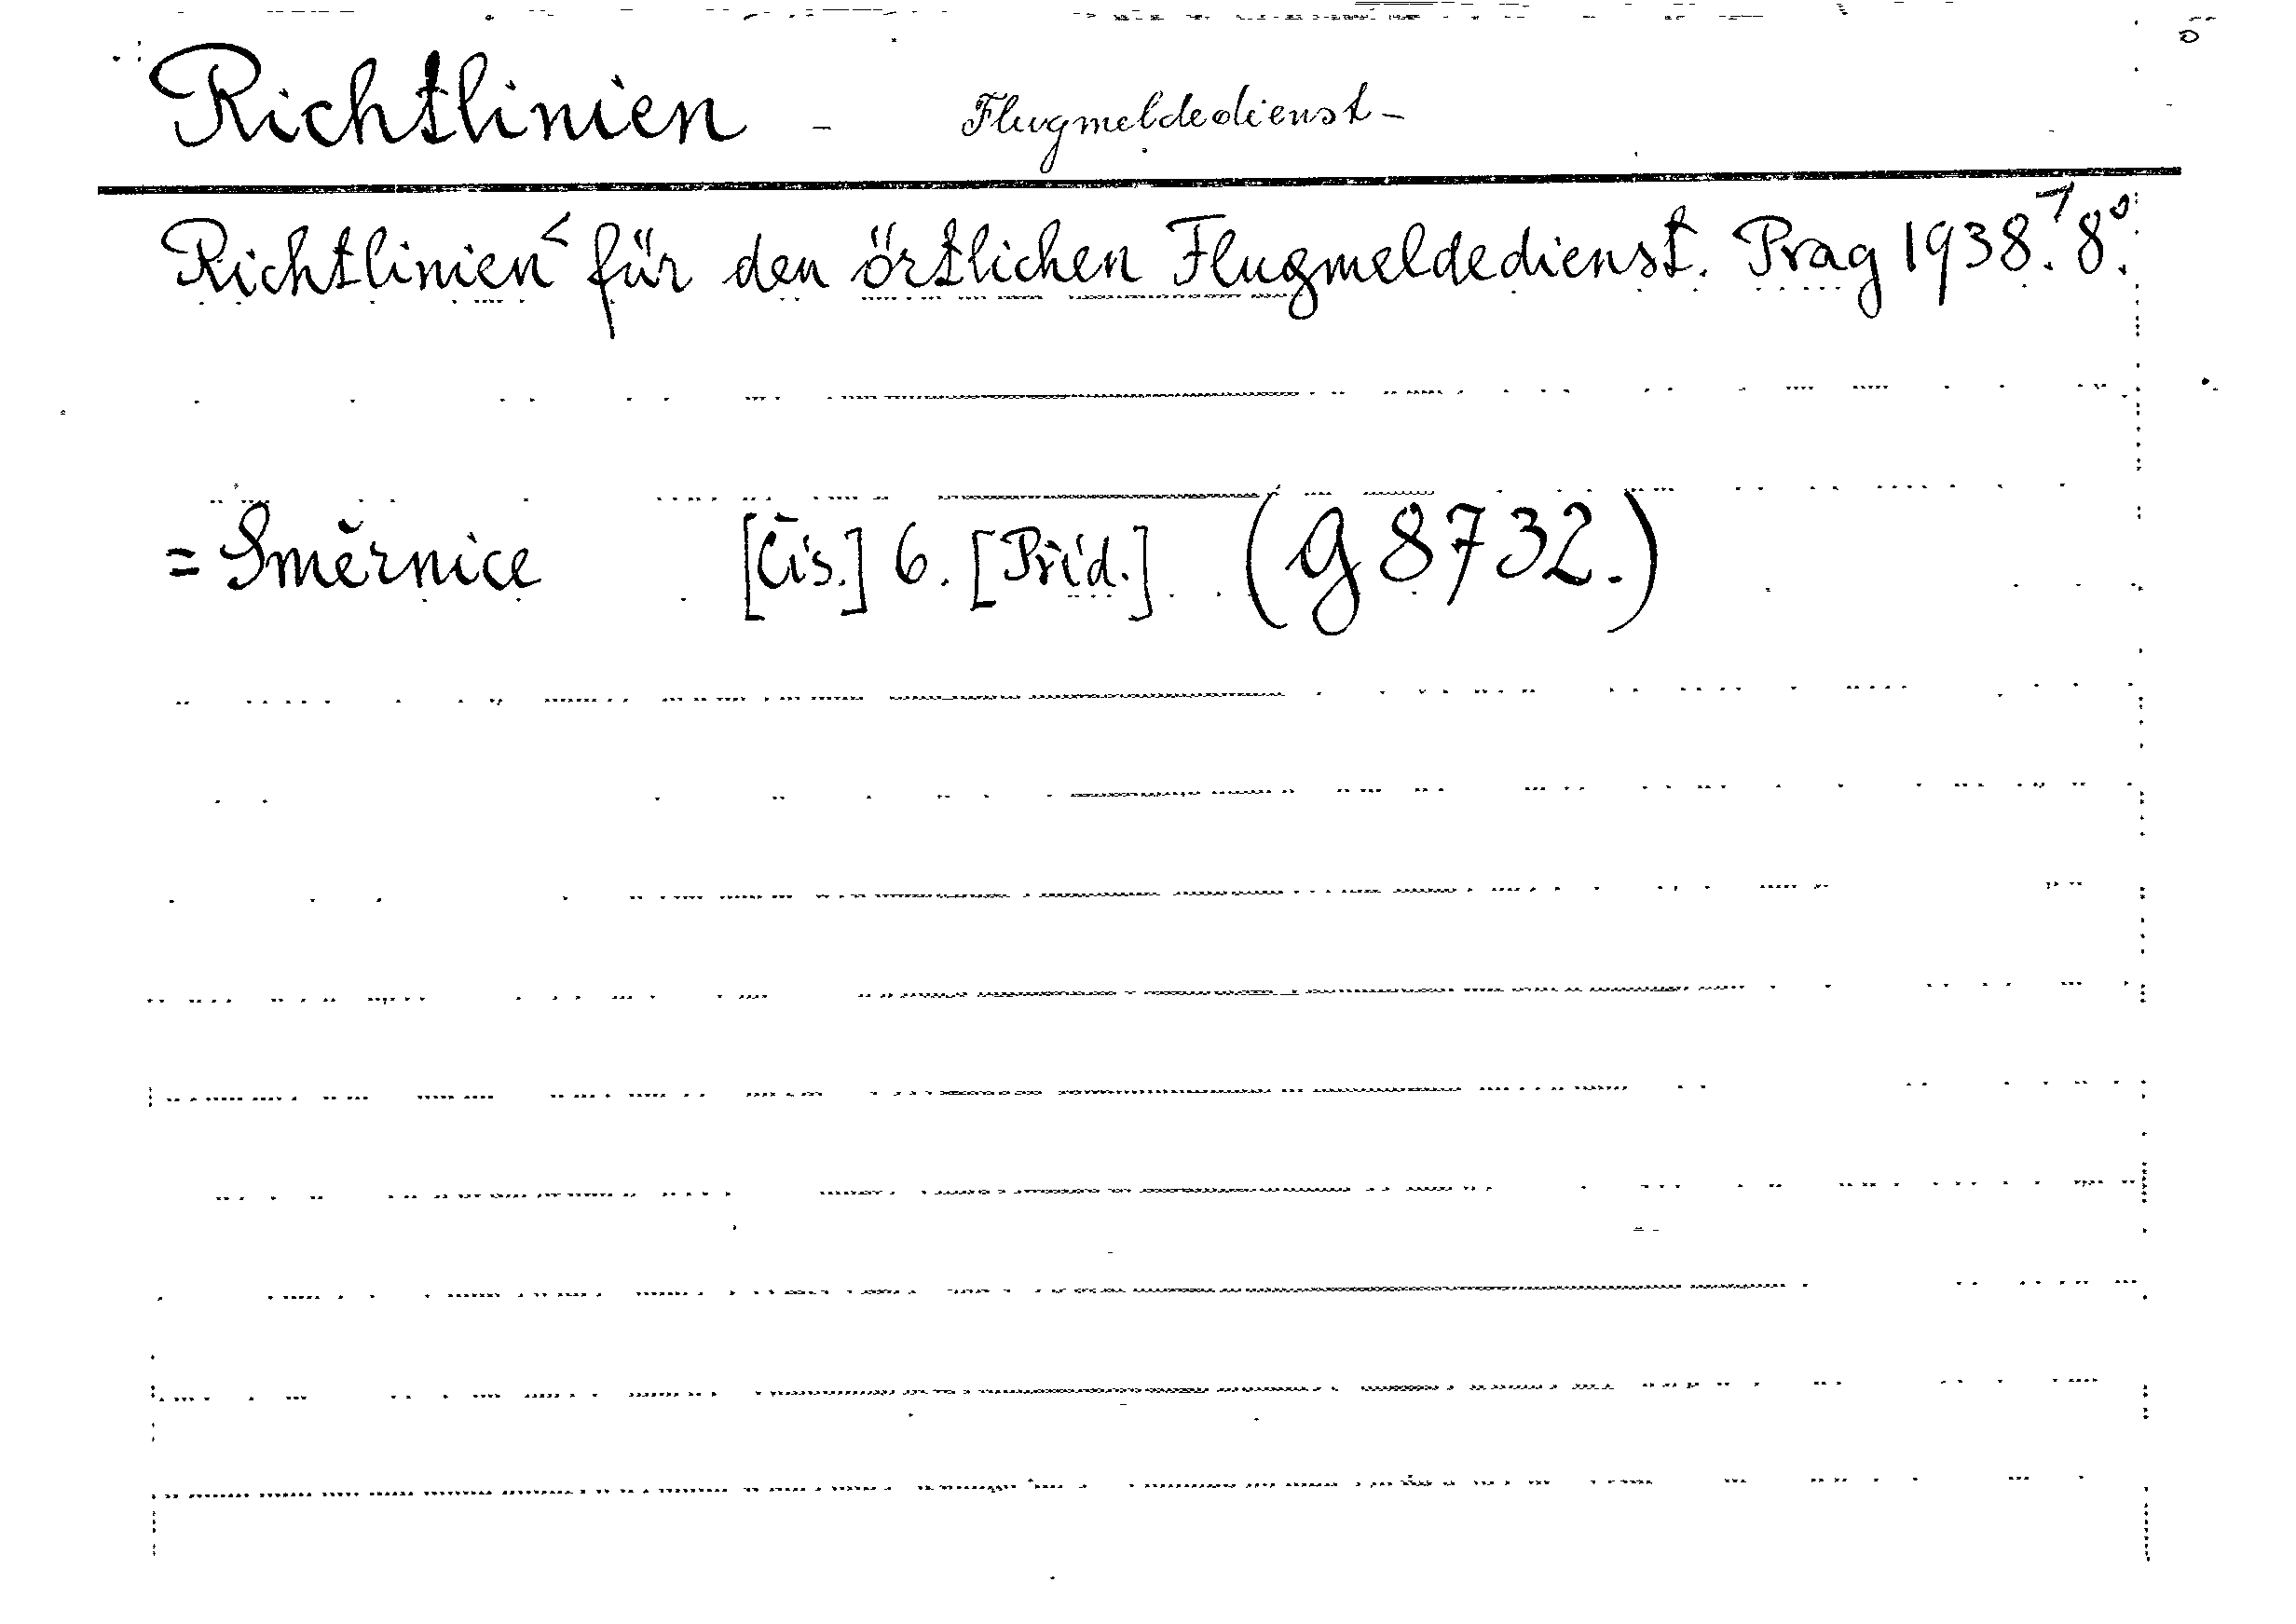 Richtlinien - Flugmeldedienst -
Richtlinien < für den örtlichen Flugmeldedienst. Prag 1938. ⁊ 8°.
= Směrnice [Čís.] 6. [Příd.] (g 8732.)